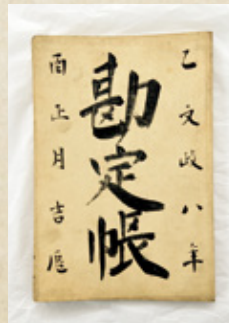 乙文政八年
勘定帳
酉正月吉辰